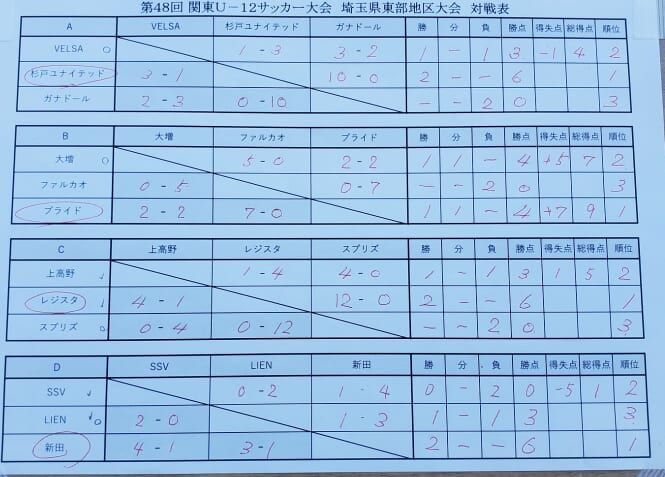 第48回 関東U－12サッカー大会 埼玉県東部地区大会 対戦表
A VELSA 杉戸ユナイテッド ガナドール 勝 分 負 勝点 得失点 総得点 順位
VELSA 1 - 3 3 - 2 1 - 1 3 -1 4 2
杉戸ユナイテッド 3 - 1 10 - 0 2 - - 6 1
ガナドール 2 - 3 0 - 10 - - 2 0 3
B 大増 ファルカオ プライド 勝 分 負 勝点 得失点 総得点 順位
大増 5 - 0 2 - 2 1 1 - 4 +5 7 2
ファルカオ 0 - 5 0 - 7 - - 2 0 3
プライド 2 - 2 7 - 0 1 1 - 4 +7 9 1
C 上高野 レジスタ スプリズ 勝 分 負 勝点 得失点 総得点 順位
上高野 1 - 4 4 - 0 1 - 1 3 1 5 2
レジスタ 4 - 1 12 - 0 2 - - 6 1
スプリズ 0 - 4 0 - 12 - - 2 0 3
D SSV LIEN 新田 勝 分 負 勝点 得失点 総得点 順位
SSV 0 - 2 1 - 4 0 - 2 0 -5 1 2
LIEN 2 - 0 1 - 3 1 - 1 3 3
新田 4 - 1 3 - 1 2 - - 6 1